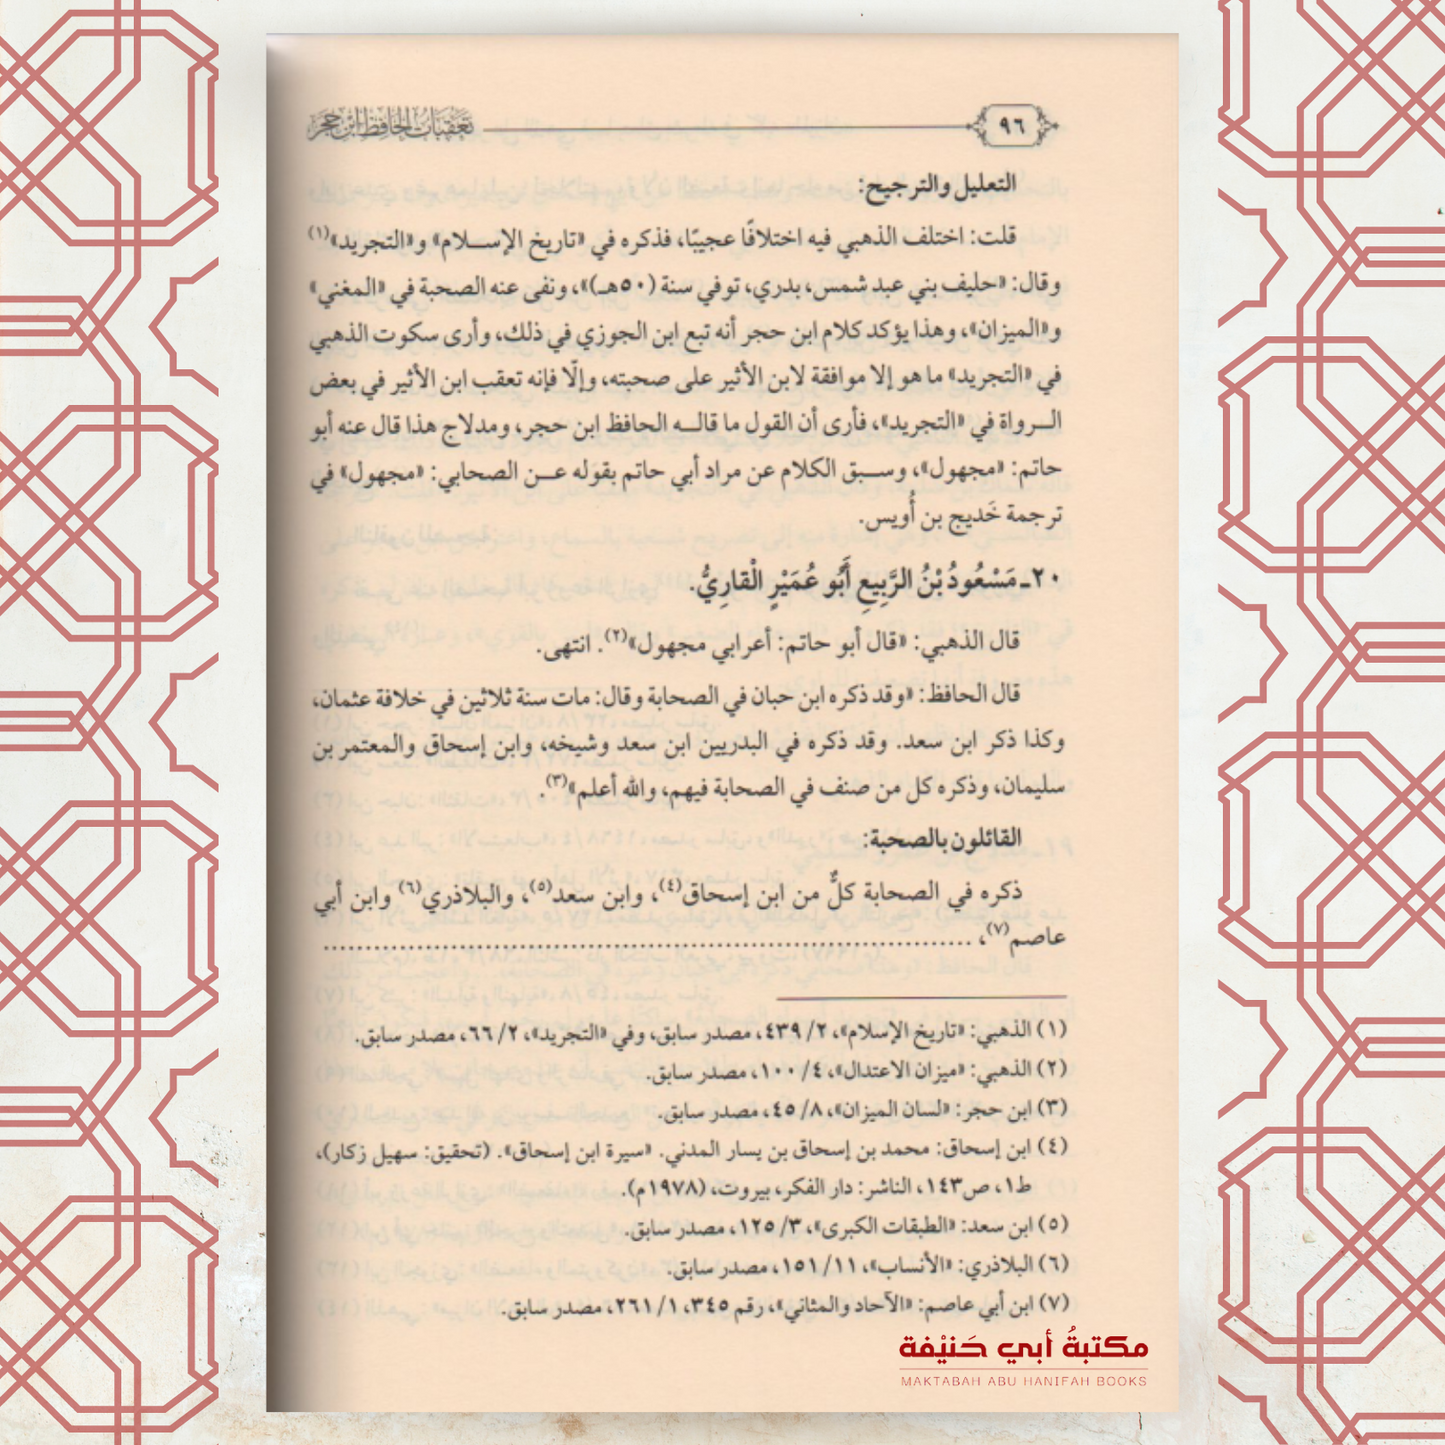 ٩٦
تعقبات الحافظ ابن حجر
التعليل والترجيح:
قلت: اختلف الذهبي فيه اختلافًا عجيبًا، فذكره في «تاريخ الإسلام» و«التجريد»(١)
وقال: «حليف بني عبد شمس، بدري، توفي سنة (٥٠هـ)»، ونفى عنه الصحبة في «المغني»
و«الميزان»، وهذا يؤكد كلام ابن حجر أنه تبع ابن الجوزي في ذلك، وأرى سكوت الذهبي
في «التجريد» ما هو إلا موافقة لابن الأثير على صحبته، وإلّا فإنه تعقب ابن الأثير في بعض
الرواة في «التجريد»، فأرى أن القول ما قاله الحافظ ابن حجر، ومدلاج هذا قال عنه أبو
حاتم: «مجهول»، وسبق الكلام عن مراد أبي حاتم بقوله عن الصحابي: «مجهول» في
ترجمة خَديج بن أُويس.
٢٠ـ مَسْعُودُ بْنُ الرَّبِيعِ أَبُو عُمَيْرٍ الْقَارِيُّ.
قال الذهبي: «قال أبو حاتم: أعرابي مجهول»(٢). انتهى.
قال الحافظ: «وقد ذكره ابن حبان في الصحابة وقال: مات سنة ثلاثين في خلافة عثمان،
وكذا ذكر ابن سعد. وقد ذكره في البدريين ابن سعد وشيخه، وابن إسحاق والمعتمر بن
سليمان، وذكره كل من صنف في الصحابة فيهم، والله أعلم»(٣).
القائلون بالصحبة:
ذكره في الصحابة كلٌّ من ابن إسحاق(٤)، وابن سعد(٥)، والبلاذري(٦) وابن أبي
عاصم(٧)، ..........................................................................
(١) الذهبي: «تاريخ الإسلام»، ٢/ ٤٣٩، مصدر سابق، وفي «التجريد»، ٢/ ٦٦، مصدر سابق.
(٢) الذهبي: «ميزان الاعتدال»، ٤/ ١٠٠، مصدر سابق.
(٣) ابن حجر: «لسان الميزان»، ٨/ ٤٥، مصدر سابق.
(٤) ابن إسحاق: محمد بن إسحاق بن يسار المدني. «سيرة ابن إسحاق». (تحقيق: سهيل زكار)،
ط١، ص١٤٣، الناشر: دار الفكر، بيروت، (١٩٧٨م).
(٥) ابن سعد: «الطبقات الكبرى»، ٣/ ١٢٥، مصدر سابق.
(٦) البلاذري: «الأنساب»، ١١/ ١٥١، مصدر سابق.
(٧) ابن أبي عاصم: «الآحاد والمثاني»، رقم ٣٤٥، ١/ ٢٦١، مصدر سابق.
مكتبةُ أبي حَنيْفة
MAKTABAH ABU HANIFAH BOOKS